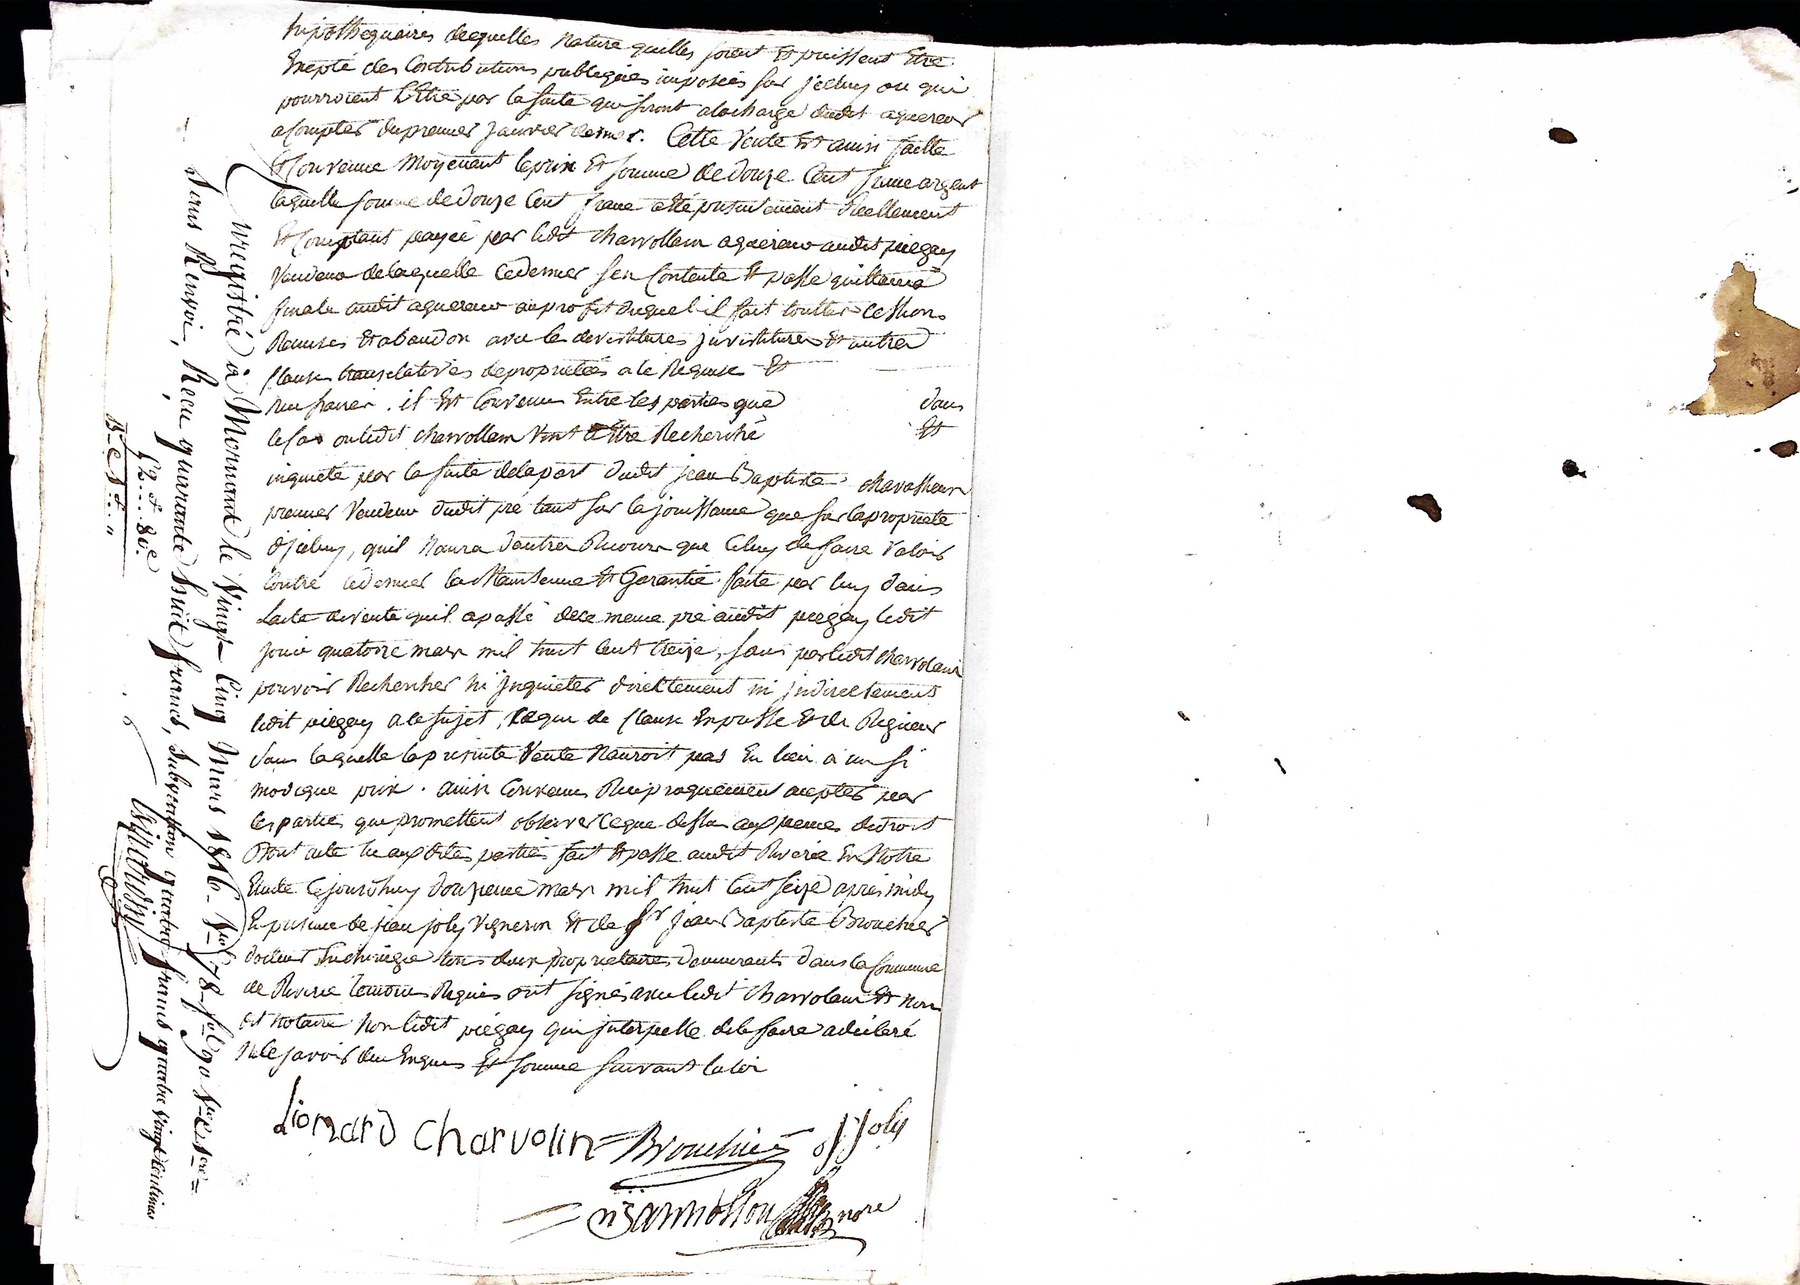 hipothequaires decquelles nature quelles soient et puissent Etre
Exepté des Contributions publiques imposées sur jceluy ou qui
pourroient L'etre par la suite qui seront alacharge dudit aquereur
acompter dupremier janvier dernier. Cette Vente Est ainsi faitte
et Convenue moyenant leprix Et somme de douze Cent franc argent
laquelle somme de douze Cent franc a été présentement Réellement
Et Comptant payée par ledit charvollain aquereur audit piegay
Vendeur delaquelle cedernier sen Contente Et passe quittance
finale audit aquereur auprofit duquel il fait touttes cessions
Remises Et abandon avec les devestitures jnvestitures Et autres
Clauses translatives depropriétés a ce Requises Et
necessaires. il Est Convenus Entre les parties que dans
le Cas ou ledit charvollain Vint a Etre Recherché Et
inquieté par la suite delapart dudit jean Baptiste chavassieux
premier Vendeur dudit pré tant sur la jouissance que sur lapropriété
d'jceluy, quil naura dautres Recours que Celuy de faire Valoir
Contre cedernier la Maintenue Et Garantie faite par luy dans
Lacte devente quil apassé dece meme pré audit piegay ledit
jour quatorze mars mil huit Cent treize, sans parledit charvolain
pouvoir Rechercher ni jnquieter directement ni jndirectement
ledit piegay a ce sujet, ce que de Clause Expresse Et de Rigueur
sans laquelle la presente Vente nauroit pas Eu lieu a un si
modique prix. ainsi Convenus Reciproquement acceptés par
les parties qui promettent observer ceque dessus aux peines dedroit
Dont acte lu auxdites parties fait Et passé audit Riverie En Notre
Etude cejourdhuy douzieme mars mil huit Cent seize après midy
En presence de jean joly Vigneron Et de Sr jean Baptiste Brouchier
docteur En chirurgie tous deux propriétaires demeurants dans la Commune
de Riverie temoins Requis ont signés avec ledit charvolain Et nous
dit notaire non ledit piegay qui jnterpellé dele faire adéclaré
nele savoir deu Enquis Et sommé suivant la loi
Lionard Charvolin Brouchier jj Joly
nore
Enregistré à Mornant le Vingt Cinq Mars 1816. Vol 78 fol 90 Vo
sans Renvoi, Reçu quarante huit francs, Subvention quatre francs quatre Vingt Centimes